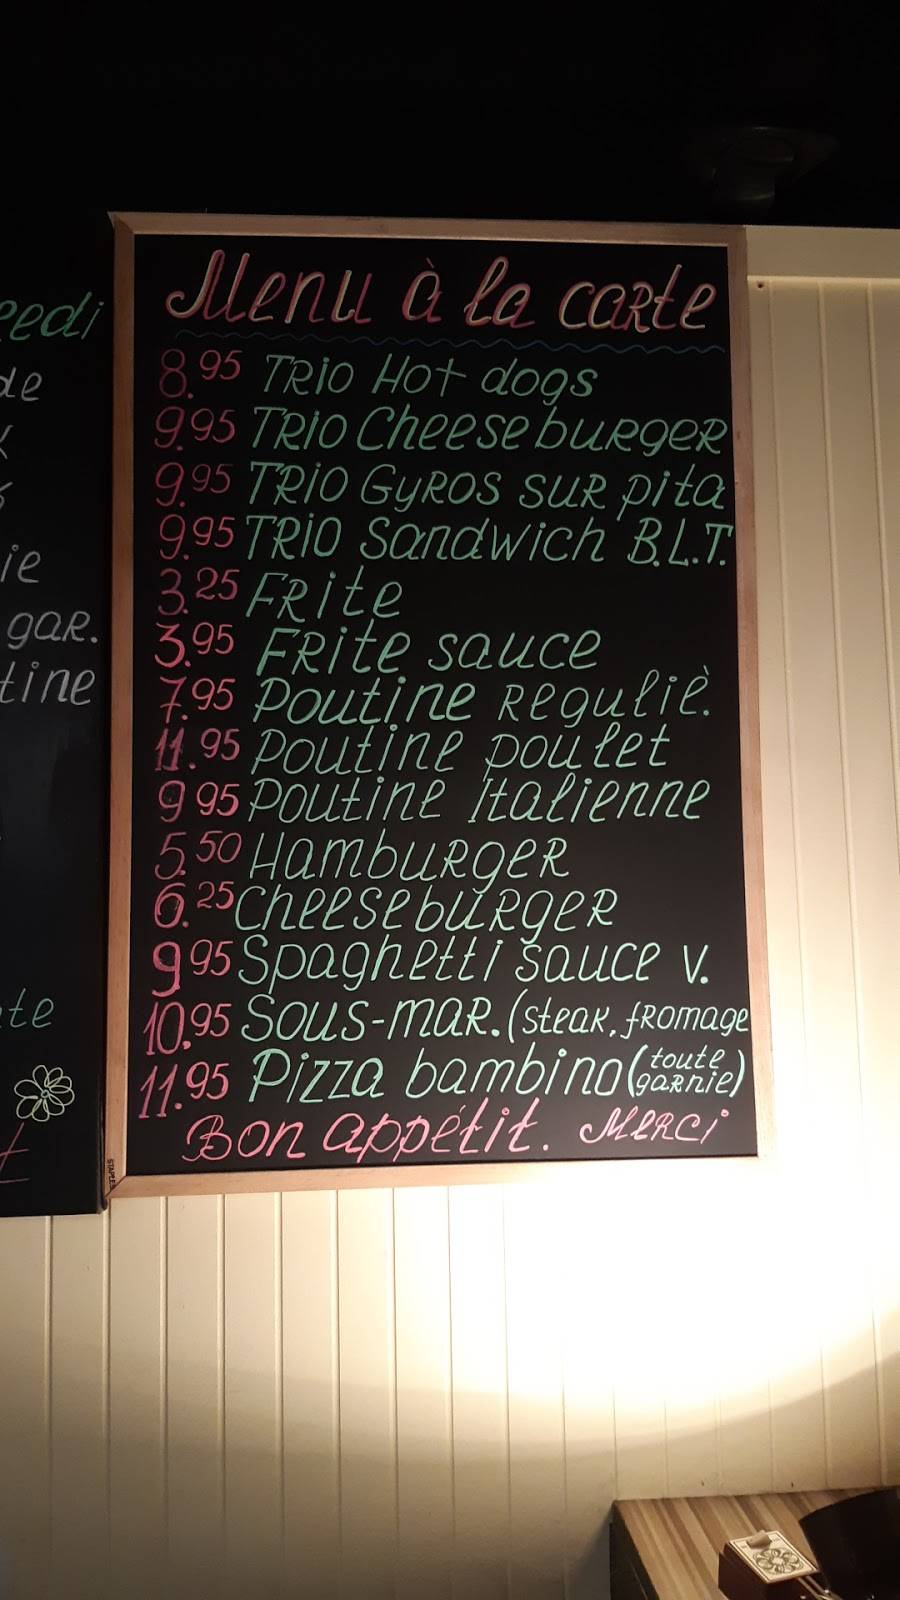 Menu à la carte
8.95 Trio Hot dogs
9.95 Trio Cheeseburger
9.95 Trio Gyros sur pita
9.95 Trio Sandwich B.L.T.
3.25 Frite
3.95 Frite sauce
7.95 Poutine Reguliè.
11.95 Poutine poulet
9 95 Poutine Italienne
5.50 Hamburger
6.25 Cheeseburger
9 95 Spaghetti sauce v.
10.95 Sous-mar. (steak, fromage
11.95 Pizza bambino (toute garnie)
Bon appétit. Merci
STAPLES
edi
de
ie
gar.
tine
te
t